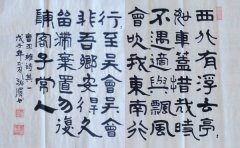 西北有浮云亭
如車蓋惜哉時
不遇適與飄風
會吹我東南行
行至吳會吳會
非吾鄉安得久
留滯棄置勿復
陳客子常畏人
曹丕雜詩其一
戊子年